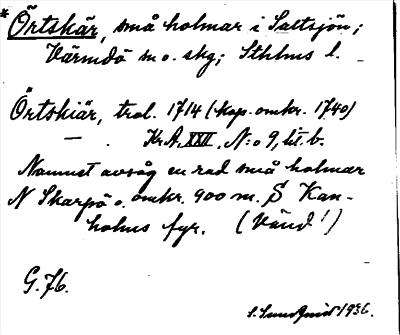 *Örtskär, små holmar i Saltsjön;
Värmdö sn o. skg; Sthlms l.
Örtskiär, trol. 1714 (kop. omkr. 1740)
— KrA, XXII, N:o 9, lit. b.
Namnet avsåg en rad små holmar
N Skarpö o. omkr. 900 m. S Kan-
holms fyr. (Vänd!)
G. 76.
S. Sundqvist 1936.